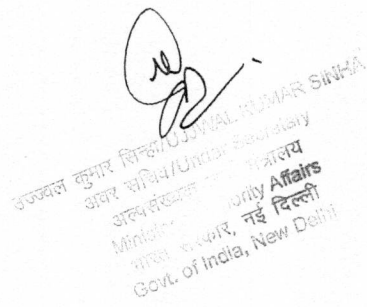 उज्ज्वल कुमार सिन्हा/UJJWAL KUMAR SINHA
अवर सचिव/Under Secretary
अल्पसंख्यक मंत्रालय
Ministry Minority Affairs
भारत सरकार, नई दिल्ली
Govt. of India, New Delhi